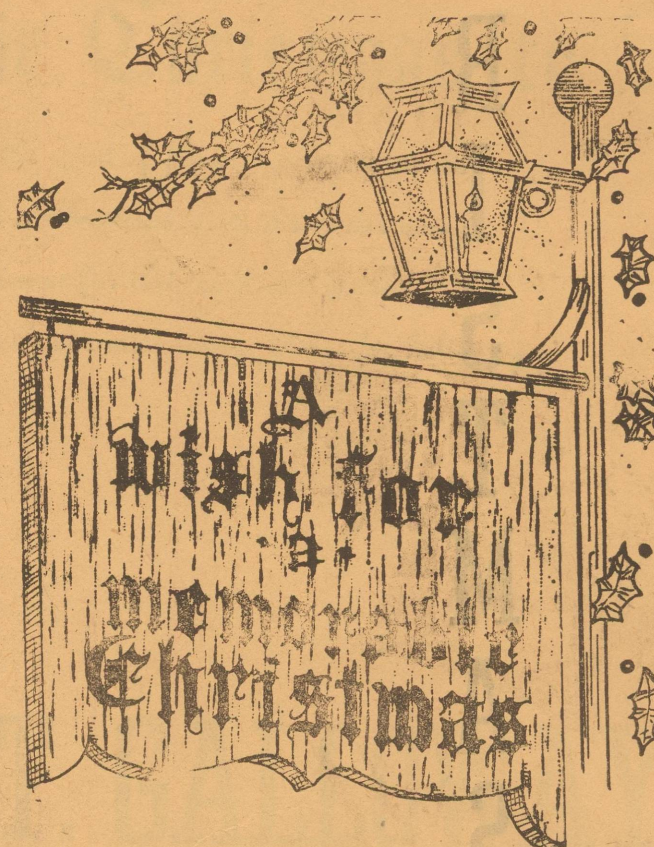 A
wish for
a
memorable
Christmas